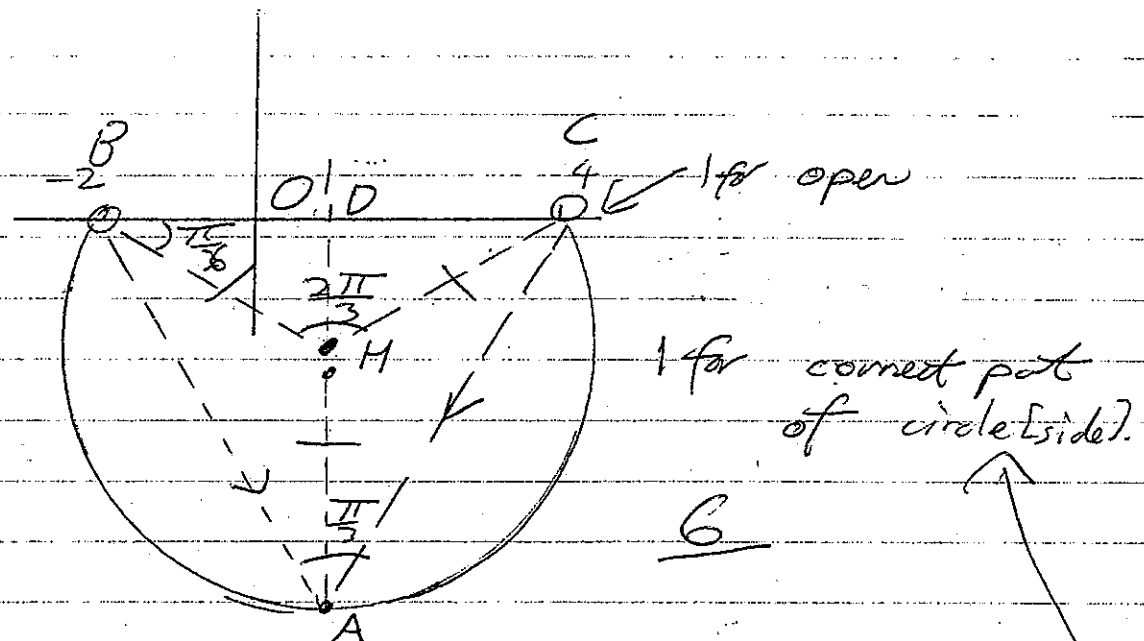 B C
-2 4 1 for open
O D
π/6
2π/3
H
1 for correct part
of circle [side].
π/3 6
A